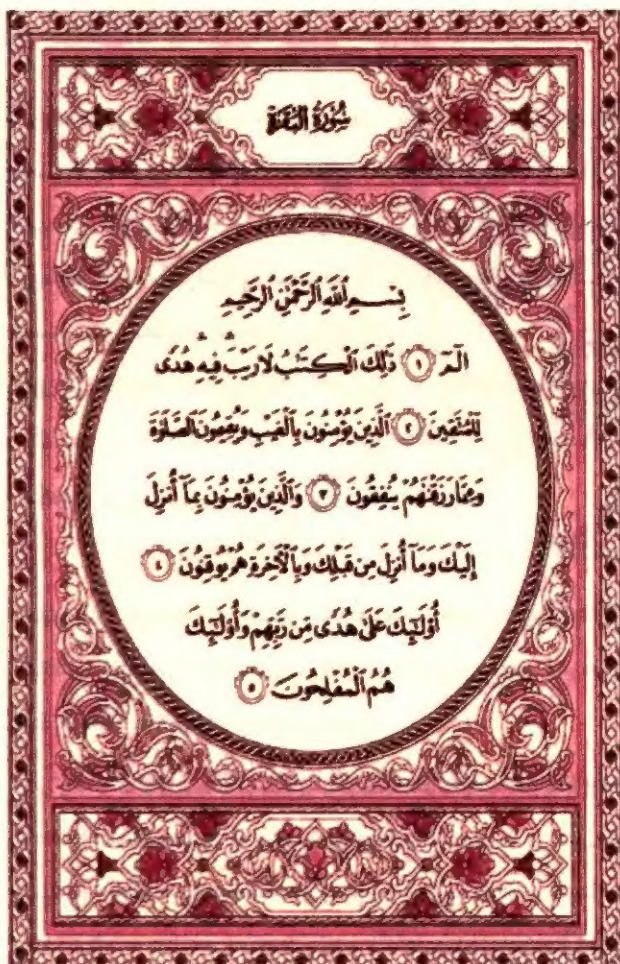 سُورَةُ الْبَقَرَةِ
بِسْمِ ٱللَّهِ ٱلرَّحْمَٰنِ ٱلرَّحِيمِ
الٓمٓ ١ ذَٰلِكَ ٱلْكِتَٰبُ لَا رَيْبَ ۛ فِيهِ ۛ هُدًى
لِّلْمُتَّقِينَ ٢ ٱلَّذِينَ يُؤْمِنُونَ بِٱلْغَيْبِ وَيُقِيمُونَ ٱلصَّلَوٰةَ
وَمِمَّا رَزَقْنَٰهُمْ يُنفِقُونَ ٣ وَٱلَّذِينَ يُؤْمِنُونَ بِمَآ أُنزِلَ
إِلَيْكَ وَمَآ أُنزِلَ مِن قَبْلِكَ وَبِٱلْءَاخِرَةِ هُمْ يُوقِنُونَ ٤
أُو۟لَٰٓئِكَ عَلَىٰ هُدًى مِّن رَّبِّهِمْ وَأُو۟لَٰٓئِكَ
هُمُ ٱلْمُفْلِحُونَ ٥